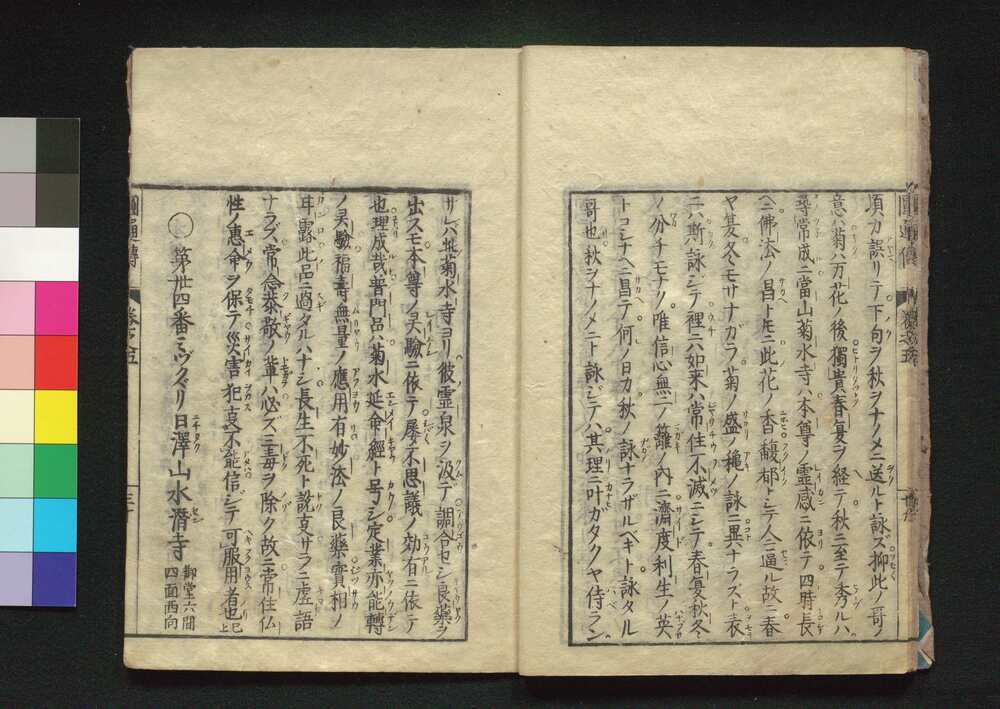 項カ誤リテ下向ヲ秋ヲナノメニ送ルト詠ズ抑此ノ哥ノ
意ハ菊ハ万花ノ後獨貴春夏ヲ経テ秋ニ至テ秀ルハ
尋常成ニ當山菊水寺ハ本尊ノ霊感ニ依テ四時長
ヘニ佛法ノ昌トモニ此花ノ香馥郁トシテ人ニ逼ル故ニ春
ヤ夏冬モサナガラ菊ノ盛ノ詠ニ異ナラスト表
ニハ斯詠シテ裡ニハ如来ハ常住不滅ニシテ春夏秋冬
ノ分チモナク唯信心無二ノ籬ノ内ニ濟度利生ノ英
トコシナヘニ昌テ何ノ日カ秋ノ詠ナラザルベキト詠タル
哥也秋ヲナノメニト詠シテハ其理ニ叶カタクヤ侍ラン
サレハ此菊水寺ヨリ彼霊泉ヲ汲テ調合セシ良藥ヲ
出スモ本尊ノ灵驗ニ依テ屡不思議ノ効有ニ依テ
也理成哉普門品ハ菊水延命經ト号シ定業亦能轉
ノ灵驗福壽無量ノ應用有妙法ノ良藥實相ノ
耳露此品ニ過タルハナシ長生不死ト説亦サラニ虚語
ナラズ常念恭敬ノ輩ハ必ズ三毒ヲ除ク故ニ常住仏
性ノ惠命ヲ保テ災害犯哀不能信シテ可服用者也
第卅四番ミヅクヾリ日澤山水潜寺
御堂六間
四面西向